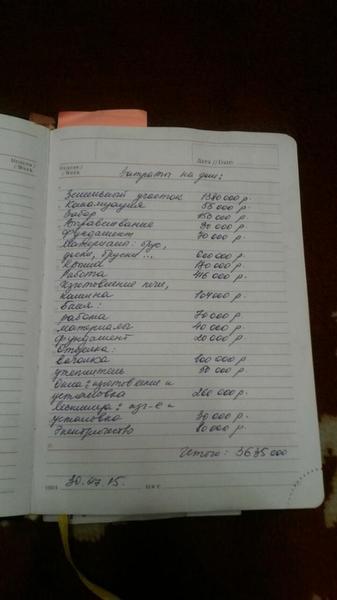 Неделя /
/ Week
Дата / Date
Затраты на дом:
Земельный участок 1380 000 р.
Канализация 55 000 р.
Забор 150 000 р.
Фундамент 70 000 р.
Материал: брус,
доски, бруски... 600 000 р.
Крыша 170 000 р.
Работа 416 000 р.
Изготовление печи,
камина 104000 р.
Баня:
работа 70 000 р.
материалы 40 000 р.
фундамент 20 000 р.
Отделка:
Вагонка 100 000 р.
утеплитель
Окна: изготовление и
установка 260 000 р.
Лестница: изг-е и
установка 30 000 р.
Электричество 80 000 р.
Итого: 3635 000
30.07.15.